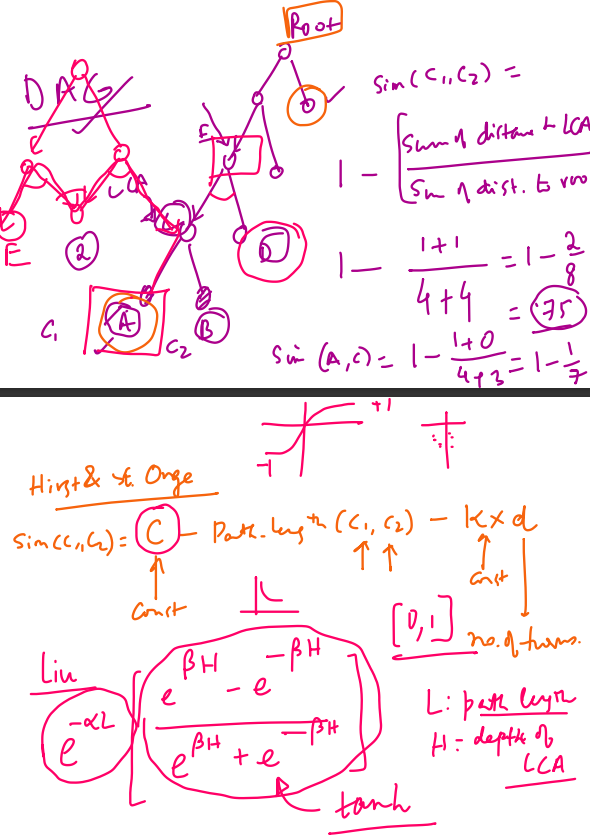 Root
DAG
Sim(C1,C2) =
1 - [Sum of distance to LCA
Sum of dist. to roo
E
LCA
C
D
E
2
1 - 1+1 / 4+4 = 1 - 2/8
= .75
C1
A
C2
B
Sim (A,C) = 1 - 1+0 / 4+3 = 1 - 1/7
+1
-1
Hirst & St. Onge
Sim(C1,C2) = C - Path-length (C1, C2) - K x d
const
const
[0,1]
no. of turns.
Liu
e^-αL [ e^βH - e^-βH / e^βH + e^-βH ]
L: path length
H = depth of
LCA
tanh